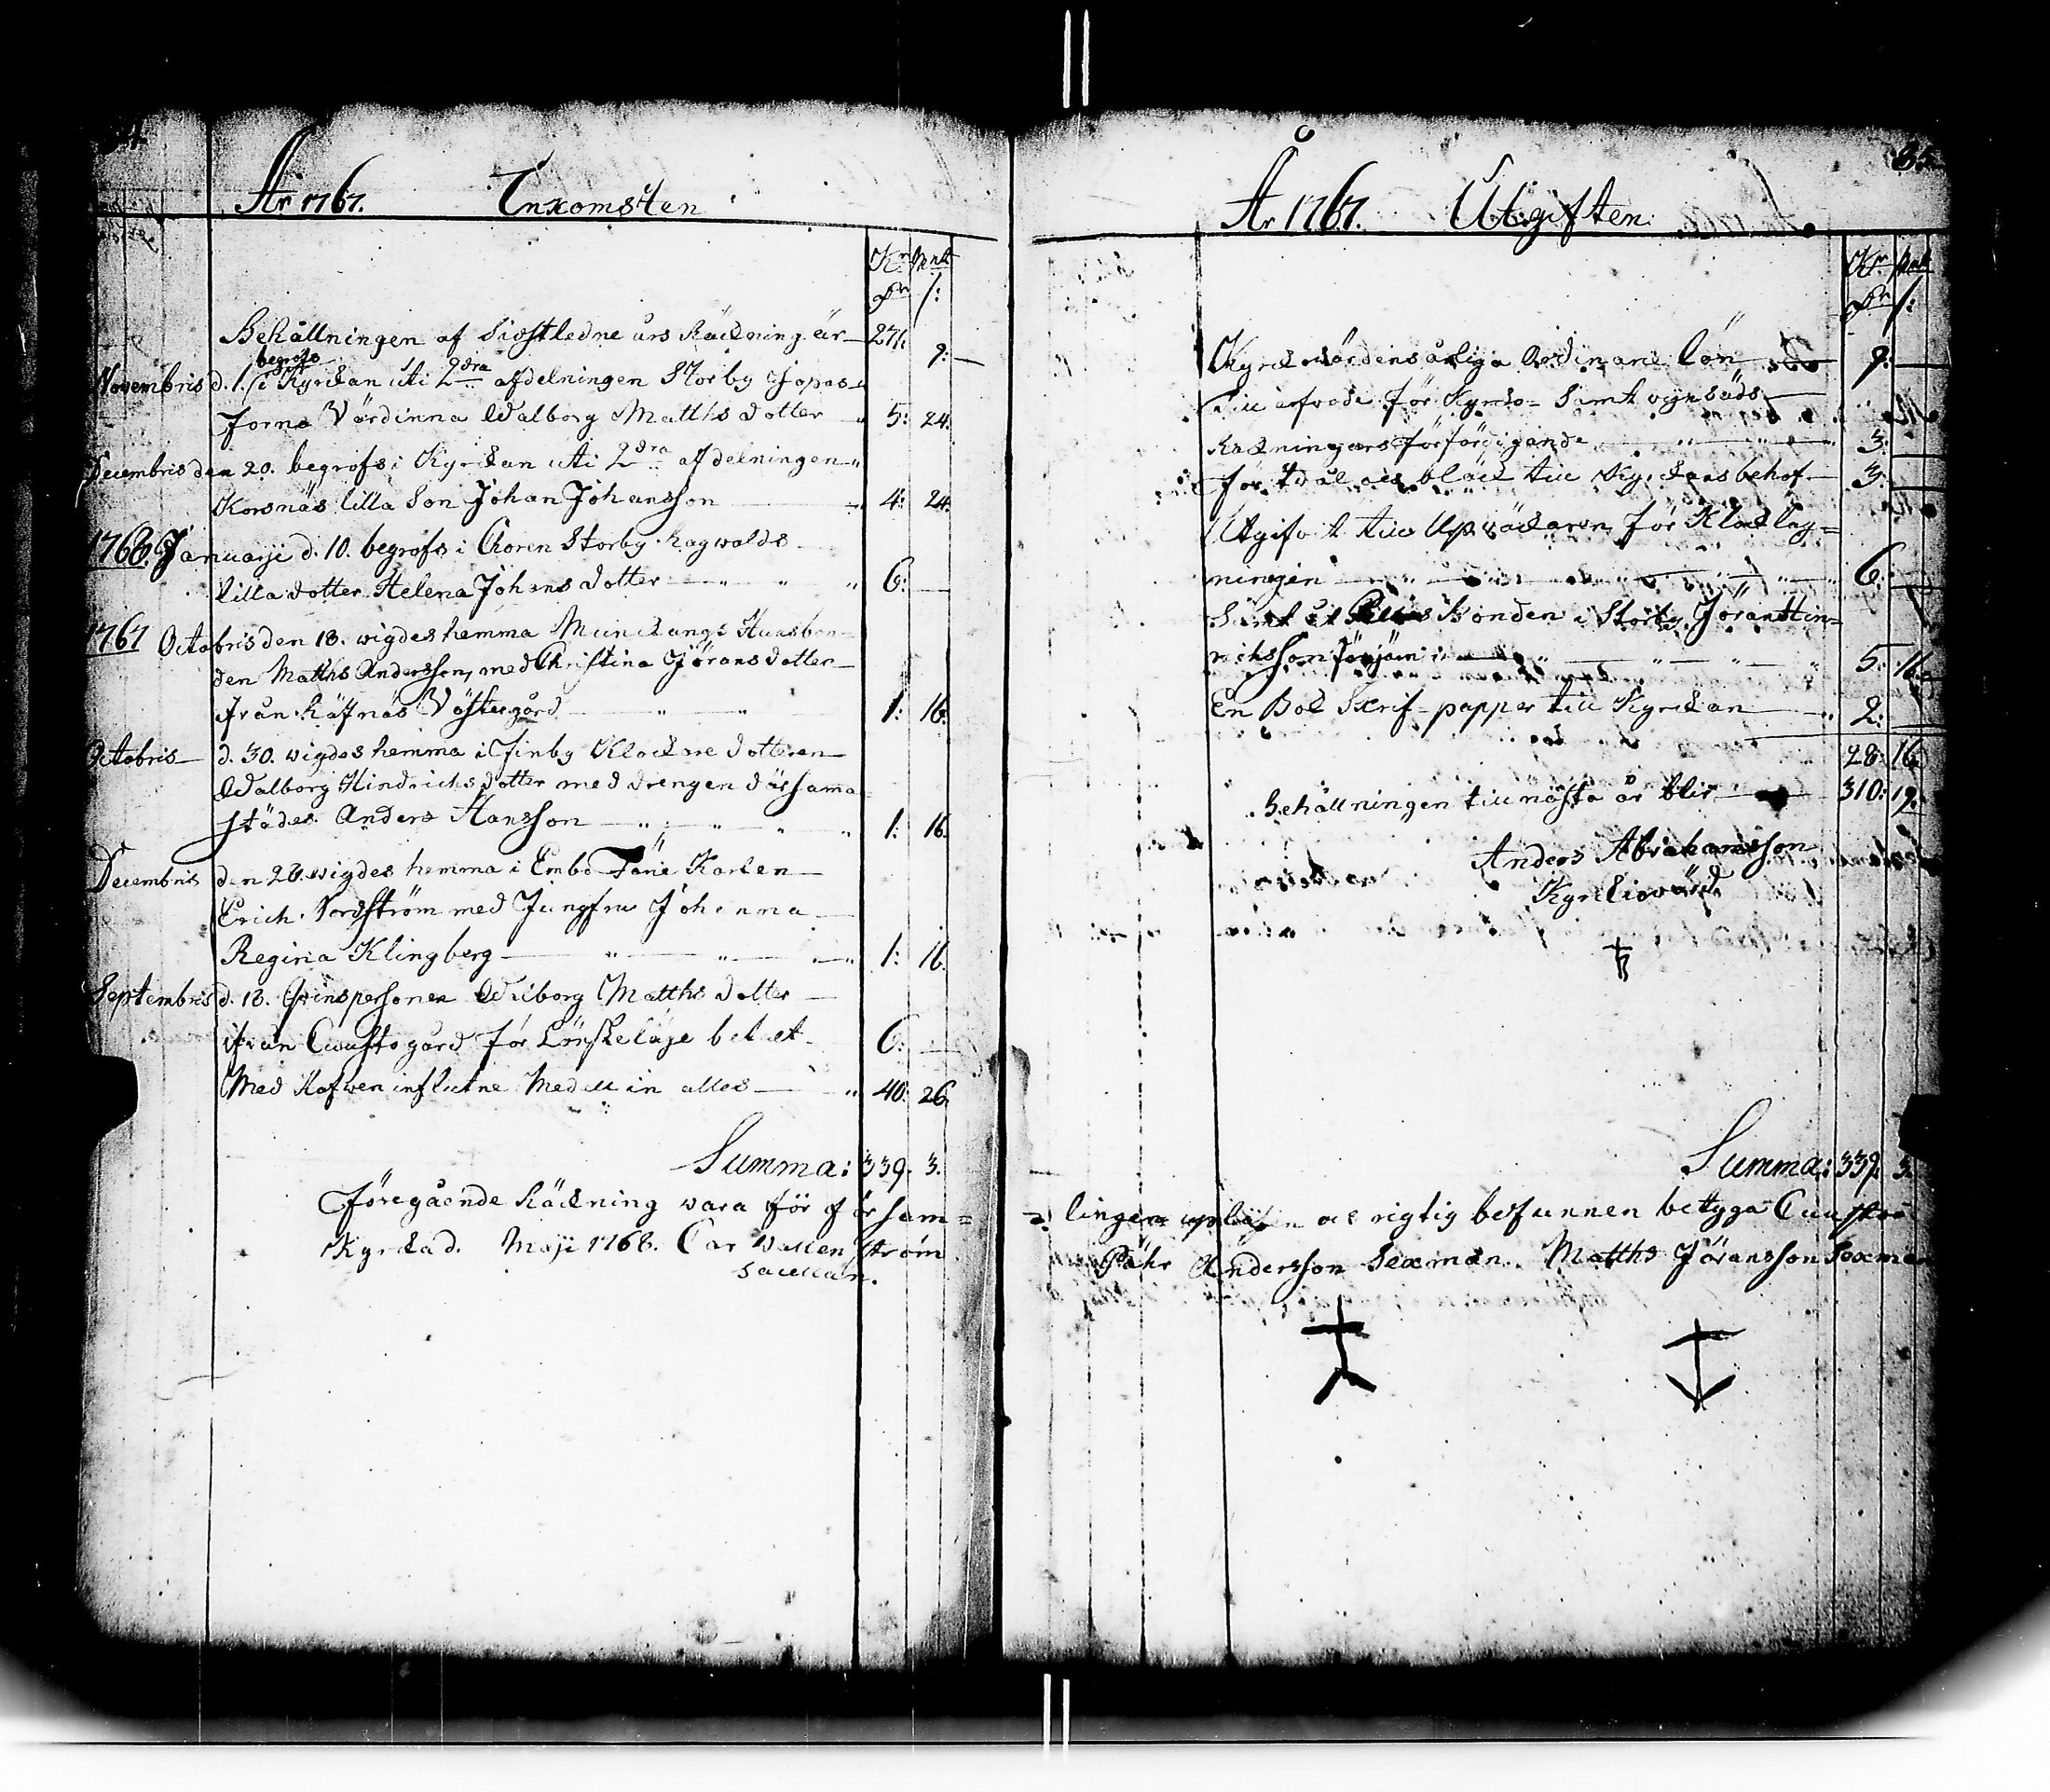 34.
År 1767. Inkomsten
Kr Mnt
Dr /:
Behållningen af Sidstledne års Räckning är 271. 9:
begrofs
Novembris d. 1. i Kyrckan uti 2dra afdelningen Storby Jopas
forna Värdinna Walborg Matths dotter 5: 24:
Decembris den 20. begrofs i Kyrckan uti 2dra afdelningen
Korsnäs lilla Son Johan Johansson 4: 24.
1768. Januarji d. 10. begrofs i Choren Storby Ragwalds
lilla dotter Helena Johans dotter 6:
1767 Octobris den 18. wigdes hemma Munckangs Husbon-
den Matths Andersson, med Christina Jörans dotter
ifrån Räfnäs Västergård 1: 16.
Octobris d. 30. wigdes hemma i Finby Klockare dotteren
Walborg Hindrichs dotter med drengen där sama
städes Anders Hansson 1: 16.
Decembris den 28. wigdes hemma i Embo
Erich Nordström med Jungfru Johanna
Regina Klingberg 1: 16.
Septembris d. 18. Qvinspersonen Walborg Matths dotter
ifrån gård för Lönskeläje betalt 6:
Med Hafwen influtne Medell in alles 40: 26.
Summa: 339. 3.
Föregående Räckning vara för församl=
Kyrckad. Maji 1768. Car Wallenström
Sacellan.
35.
År 1767. Utgiften.
Kr Mnt
Dr /:
Kyrckwärdens årliga Ordinarie lön 9:
Till arfvode för Kyrko- Samt
Räckningars förfärdigande 3:
för och bläck till Kyrckans behof 3:
Utgifvit till Upväckaren för Klock
ningen 6:
Samt Bonden i Storby Jöran Hin=
richsson 5: 16.
En Bok Skrif-papper till Kyrckan 2:
28: 16
Behållningen till nästa år blir 310: 19.
Anders Abrahamsson
Kyrckiovärd
Summa: 339. 3.
lingen upläsen och rigtig befunnen betyga
Pähr Andersson Sexman. Matths Jöransson Sexman